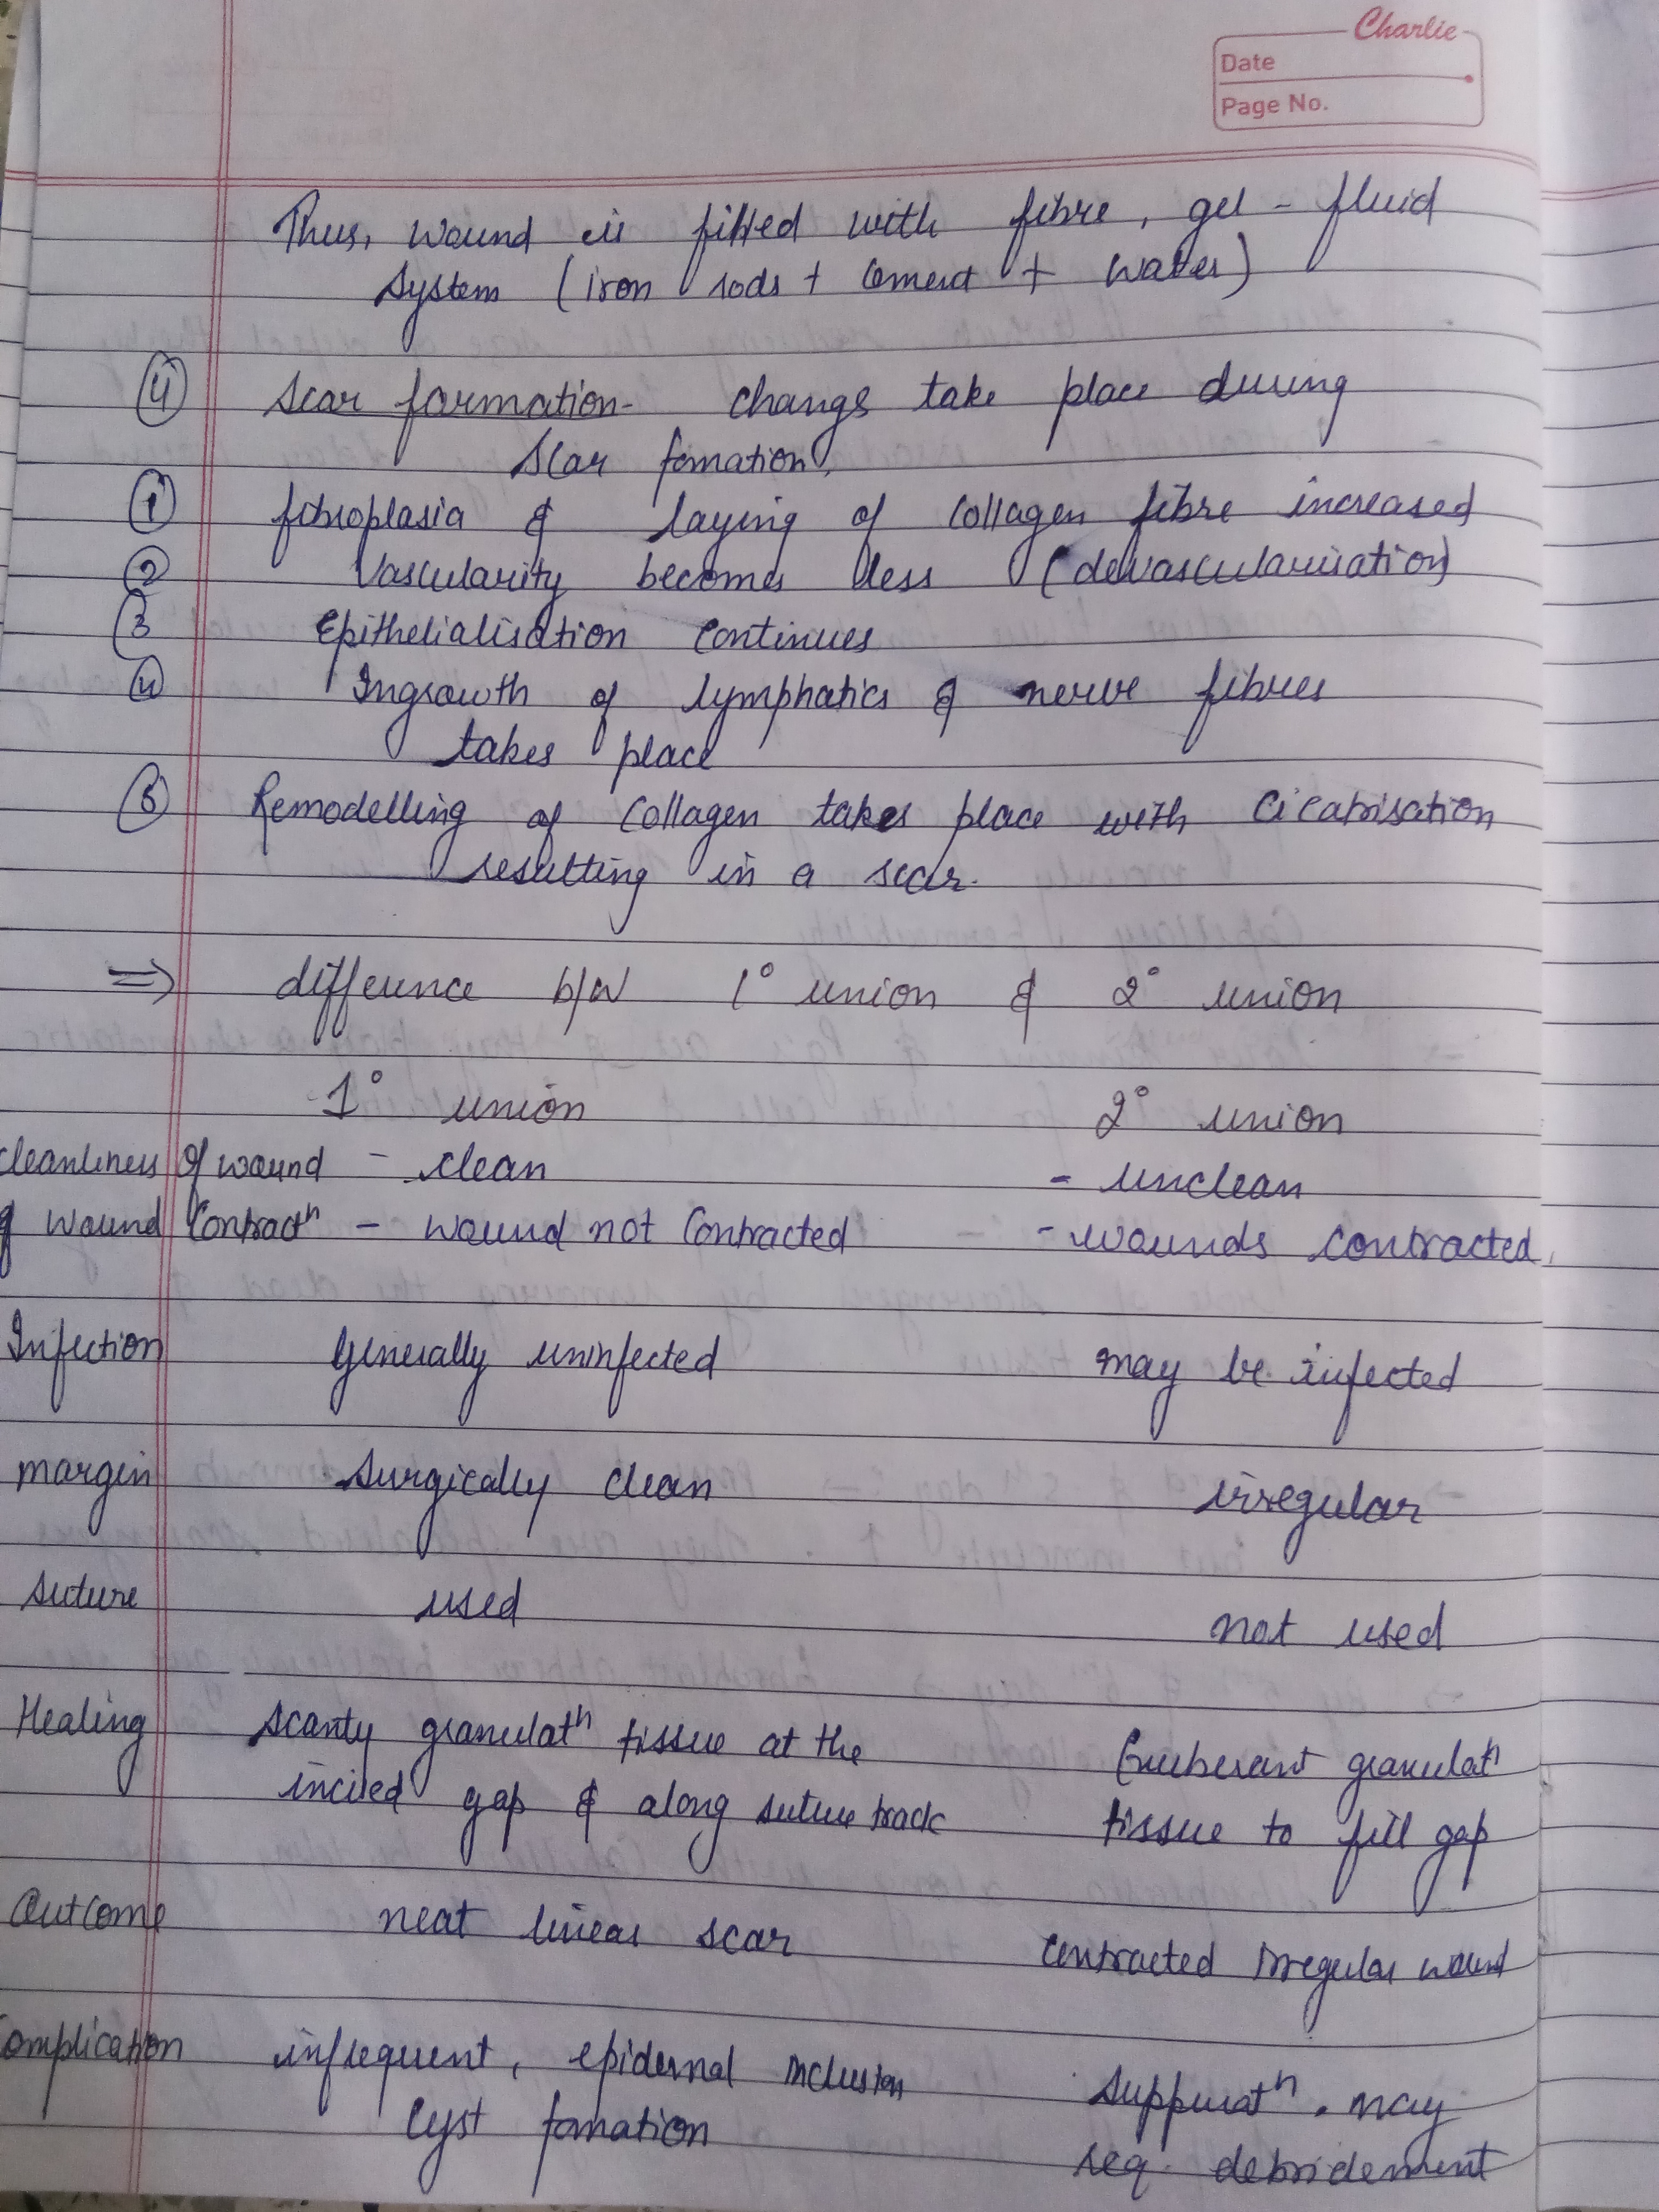 Charlie
Date
Page No.
Thus, wound is filled with fibre, gel - fluid
system (iron rods + cement + water)
④ Scar formation - changes take place during
scar fomation.
① fibroplasia & laying of collagen fibre increased
② Vascularity becomes less (devascularisation)
③ Epithelialisation continues
④ Ingrowth of lymphatics & nerve fibres
takes place
⑤ Remodelling of collagen takes place with cicatrisation
resulting in a scar.
⇒ difference b/w 1° union & 2° union
1° union 2° union
cleanliness of wound - clean - unclean
wound contractⁿ - wound not contracted - wounds contracted.
Infection Generally uninfected may be infected
margin Surgically clean irregular
suture used not used
Healing Scanty granulatⁿ tissue at the Exuberant granulatⁿ
incised gap & along suture track tissue to fill gap
Outcome neat linear scar contracted irregular wound
omplication infrequent, epidermal inclusion suppuratⁿ. may
cyst fomation req. debridement